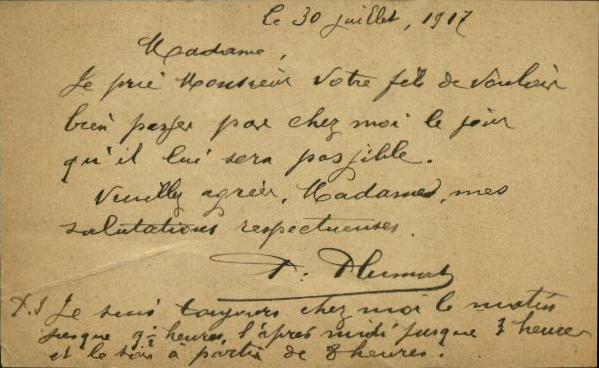 le 30 juillet, 1917
Madame,
Je prie Monsieur Votre fils de vouloir
bien passer par chez moi le jour
qu'il lui sera possible.
Veuilly agréer, Madame, mes
salutations respectueuses.
P.S Je suis toujours chez moi le matin
jusque 9½ heures, l'après midi jusque 3 heures
et le soir à partir de 8 heures.